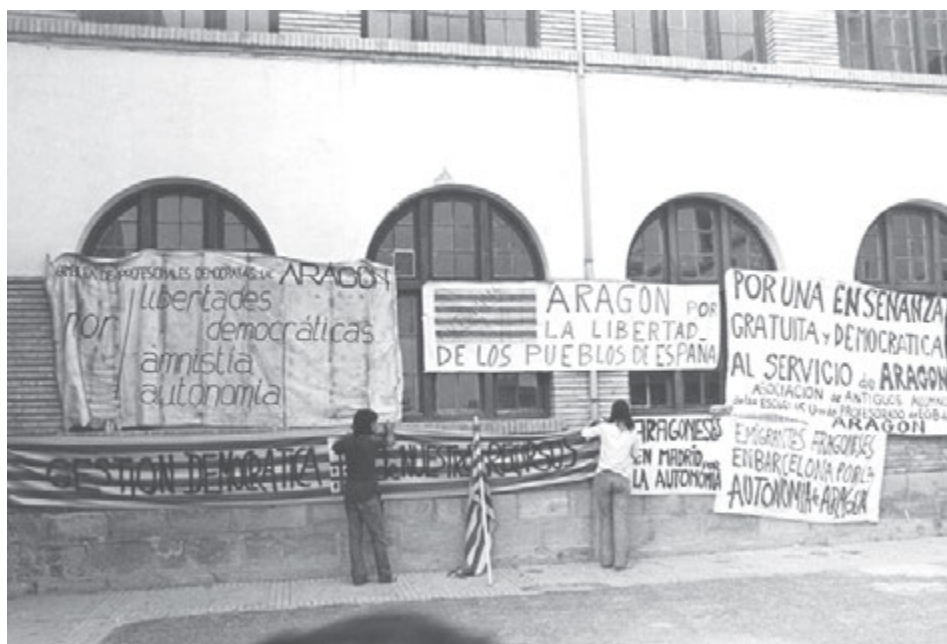 DE PROFESIONALES DEMOCRATAS DE ARAGON
por libertades
democráticas
amnistía
autonomía
ARAGON POR
LA LIBERTAD
DE LOS PUEBLOS DE ESPAÑA
POR UNA ENSEÑANZA
GRATUITA y DEMOCRATICA
AL SERVICIO de ARAGON
ASOCIACION de ANTIGUOS ALUMNOS
de las PROFESORADO de EGB
ARAGON
GESTION DEMOCRATICA DE NUESTROS RECURSOS
ARAGONESES
EN MADRID POR
LA AUTONOMIA
EMIGRANTES ARAGONESES
EN BARCELONA POR LA
AUTONOMIA de ARAGON